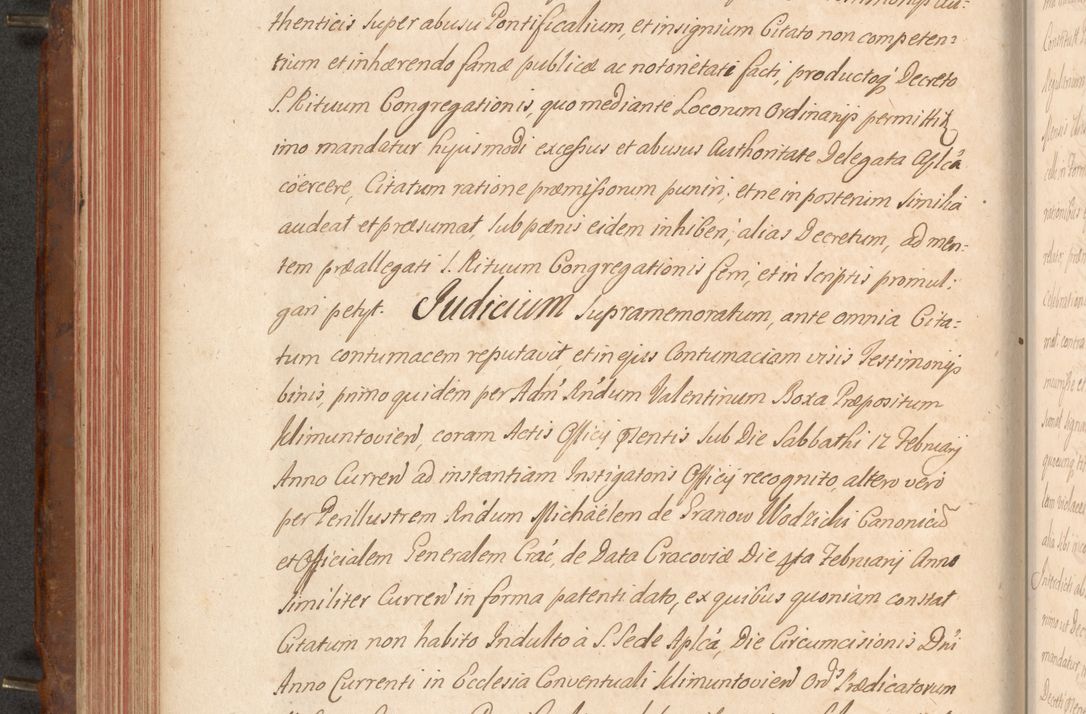 thenticis super abusu Pontificalium, et insignium Citato non competen=
tium et inhærendo famæ publicæ ac notorietati facti, productoq́ Decreto
S. Rituum Congregationis, quo mediante Locorum Ordinarijs permittit
imo mandatur hujusmodi excessus et abusus Authoritate Delegata Aplcâ
coërcere, Citatum ratione præmissorum puniri, et ne in posterum similia
audeat et præsumat, sub pænis eidem inhiberi; alias Decretum, ad men=
tem præallegati S. Rituum Congregationis ferri, et in Scriptis promul:
gari petyt. Judicium supramemoratum, ante omnia Cita=
tum contumacem reputavit, et in ejus Contumaciam visis Testimonijs
binis, primo quidem per Adm̃ Rńdum Valentinum Boxa Præpositum
Klimuntovien̄, coram Actis Officij p̄sentis Sub Die Sabbathi 12 Februarij
Anno Curren̄ ad instantiam Instigatoris Officij recognito, altero vero
per Perillustrem Rńdum Michaëlem de Granow Wodzicki Canonicū
et Officialem Generalem Crac̄, de Data Cracoviæ Die 4ta Februarij Anno
similiter Curren̄ in forma patenti dato, ex quibus quoniam constat
Citatum non habito Indulto à S. Sede Aplcâ, Die Circumcisionis Dn̄i
Anno Currenti in Ecclesia Conventuali Klimuntovien̄ Ord̄s Prædicatorum